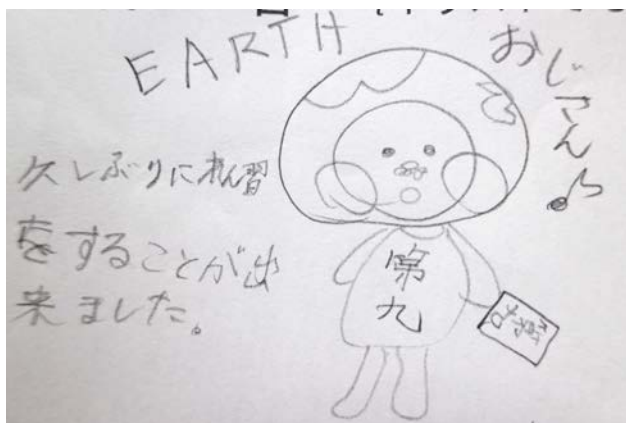 EARTH
おじさん♪
久しぶりにれん習
をすることが出
来ました。
第九